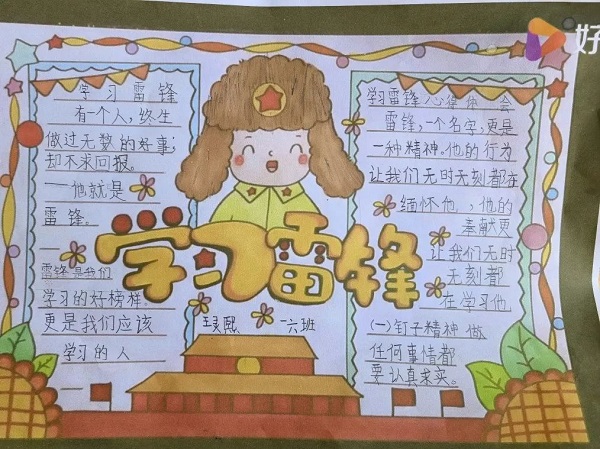 学习雷锋
有一个人，终生
做过无数的好事，
却不求回报。
一他就是
雷锋。
雷锋是我们
学习的好榜样
更是我们应该
学习的人
学习雷锋
王灵熙 一六班
学习雷锋心得体会
雷锋，一个名字，更是
一种精神。他的行为
让我们无时无刻都在
缅怀他，他的
奉献更
让我们无时
无刻都
在学习他
(一)钉子精神做
任何事情都
要认真求实。
好